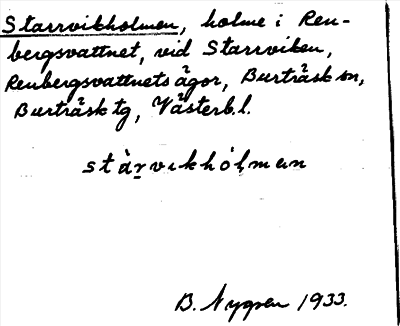 Starrvikholmen, holme i Ren-
bergsvattnet, vid Starrviken,
Renbergsvattnets ägor, Burträsk sn,
Burträsk tg, Västerb.l.
stàr̯vıkhólmən
B. Nygren 1933.